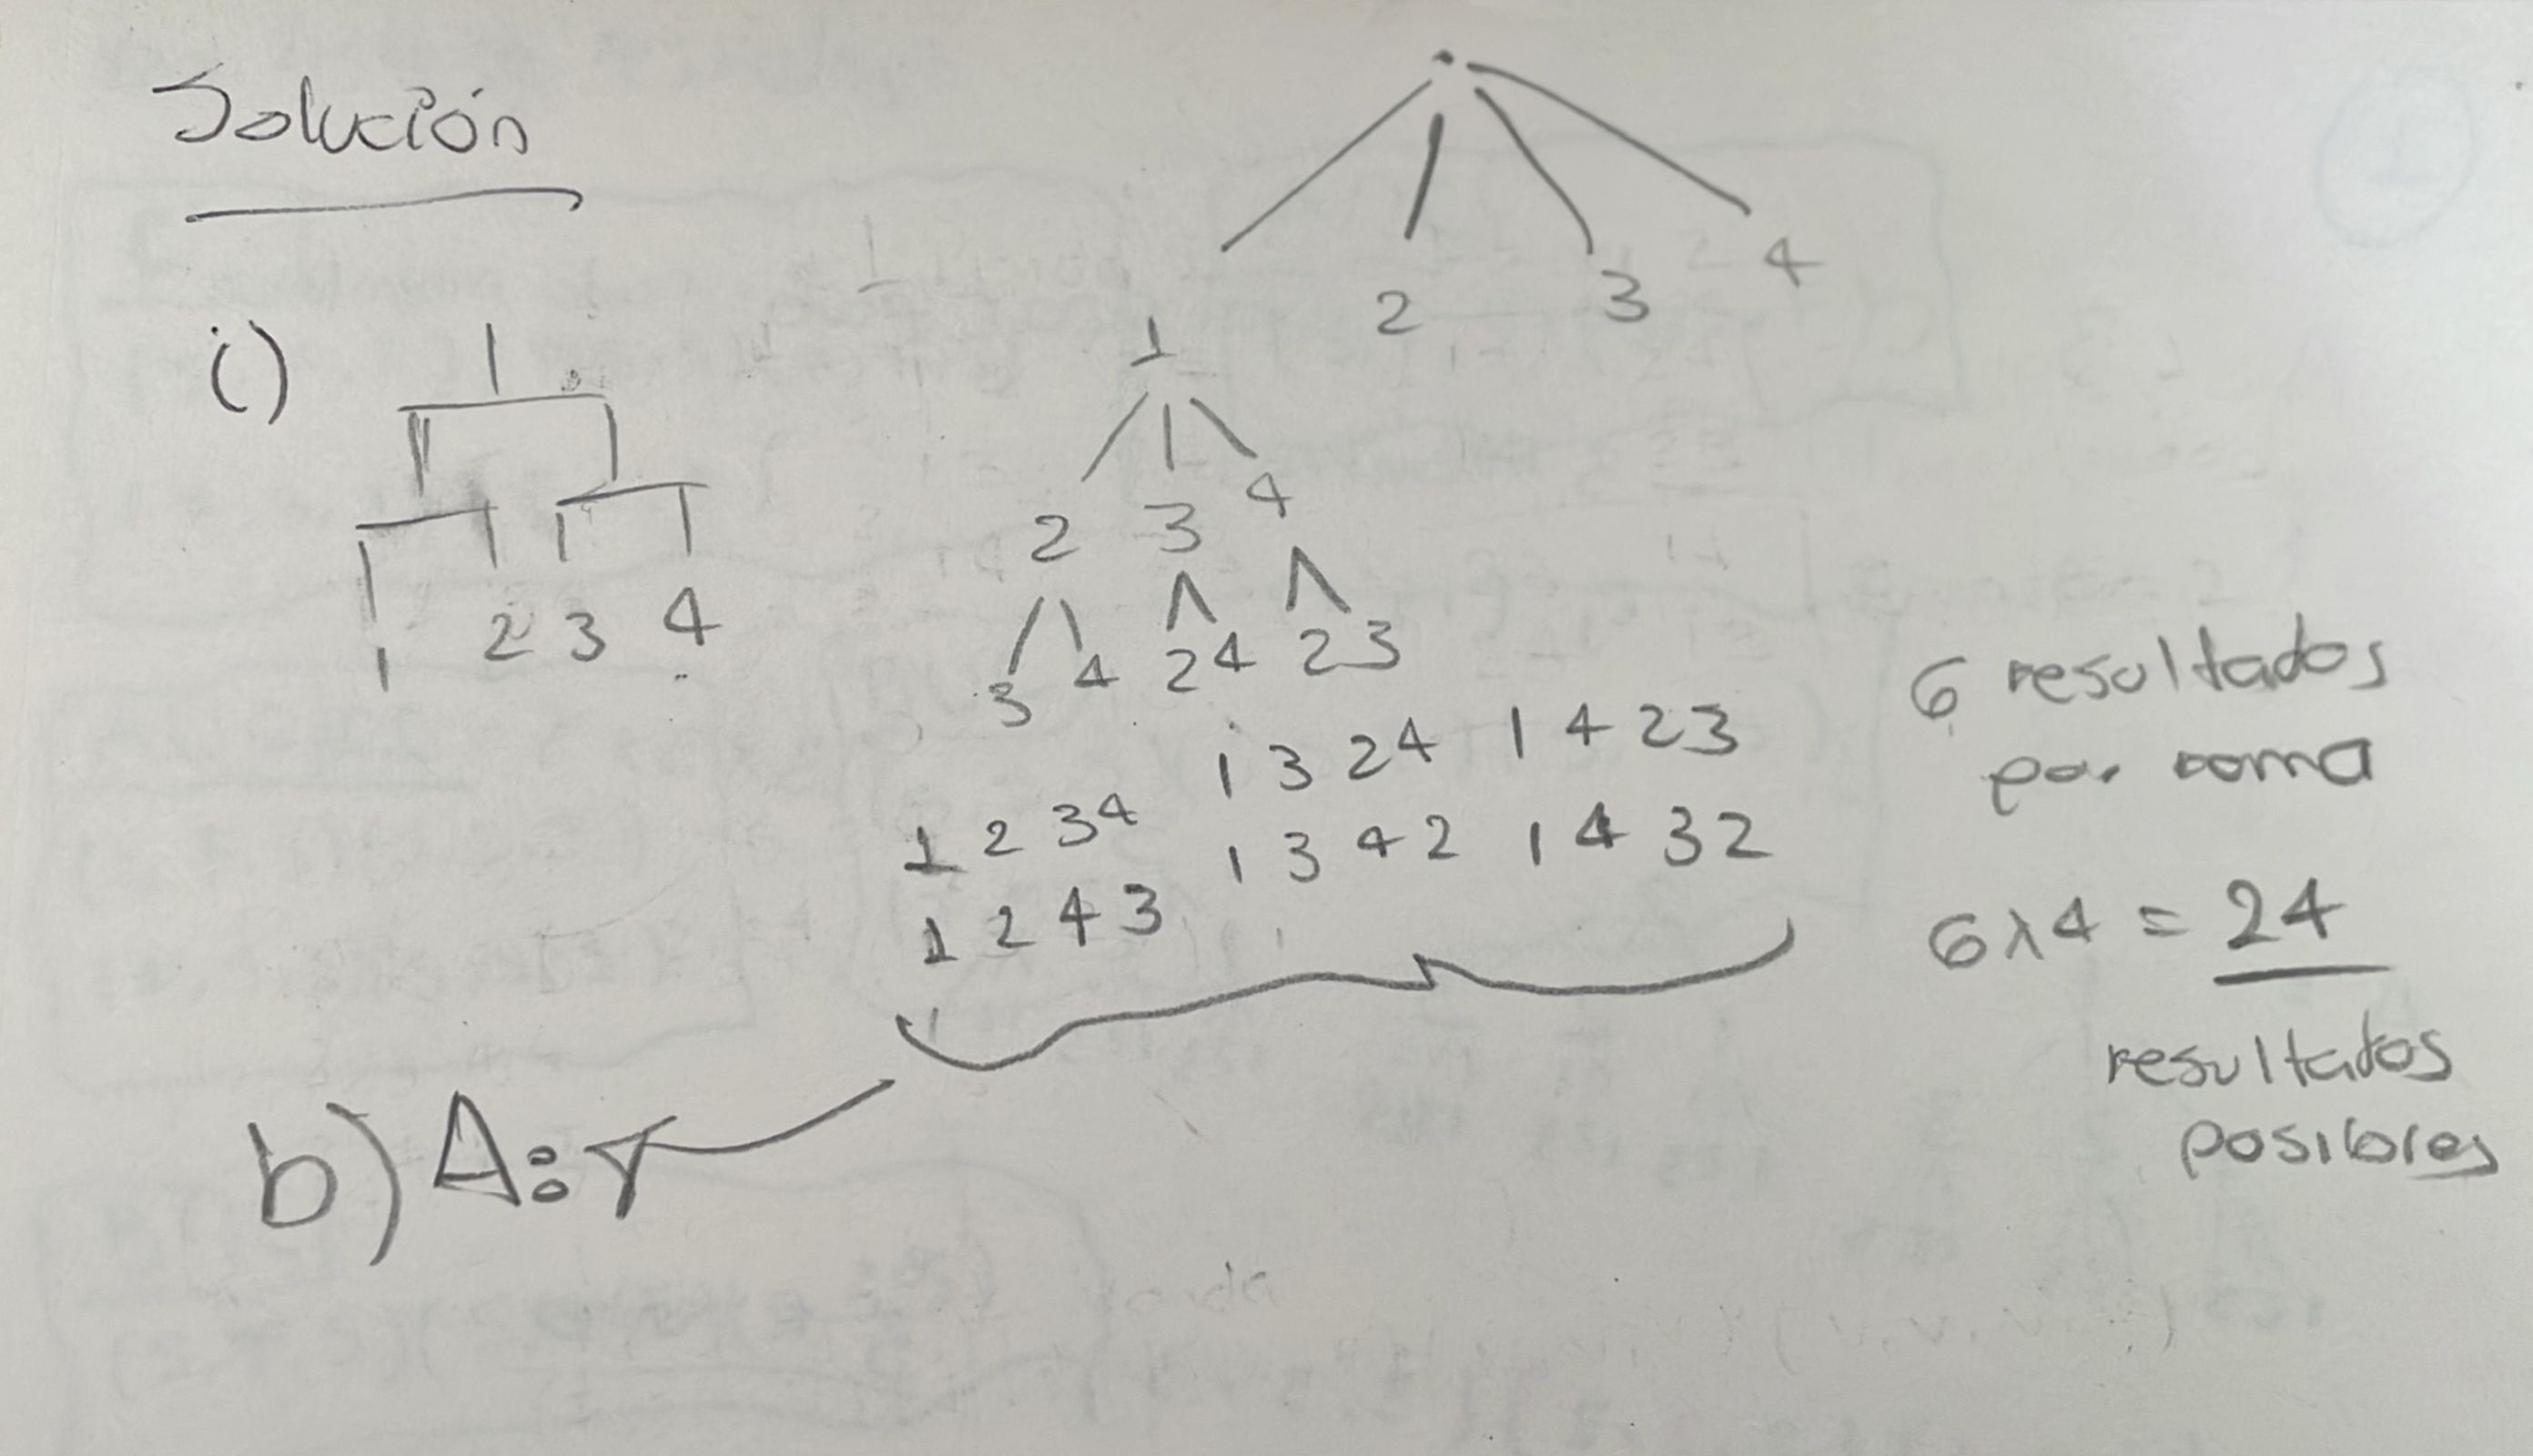 Solución
2 3 4
i)
1 2 3 4
1
2 3 4
3 4 2 4 2 3
1 2 3 4 1 3 2 4 1 4 2 3
1 2 4 3 1 3 4 2 1 4 3 2
6 resultados
por rama
6x4 = 24
resultados
posibles
b) A: